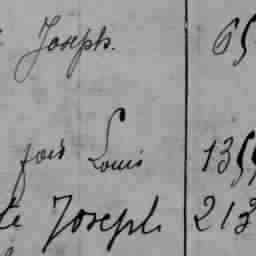 Joseph. 65
Louis 135
te Joseph 213